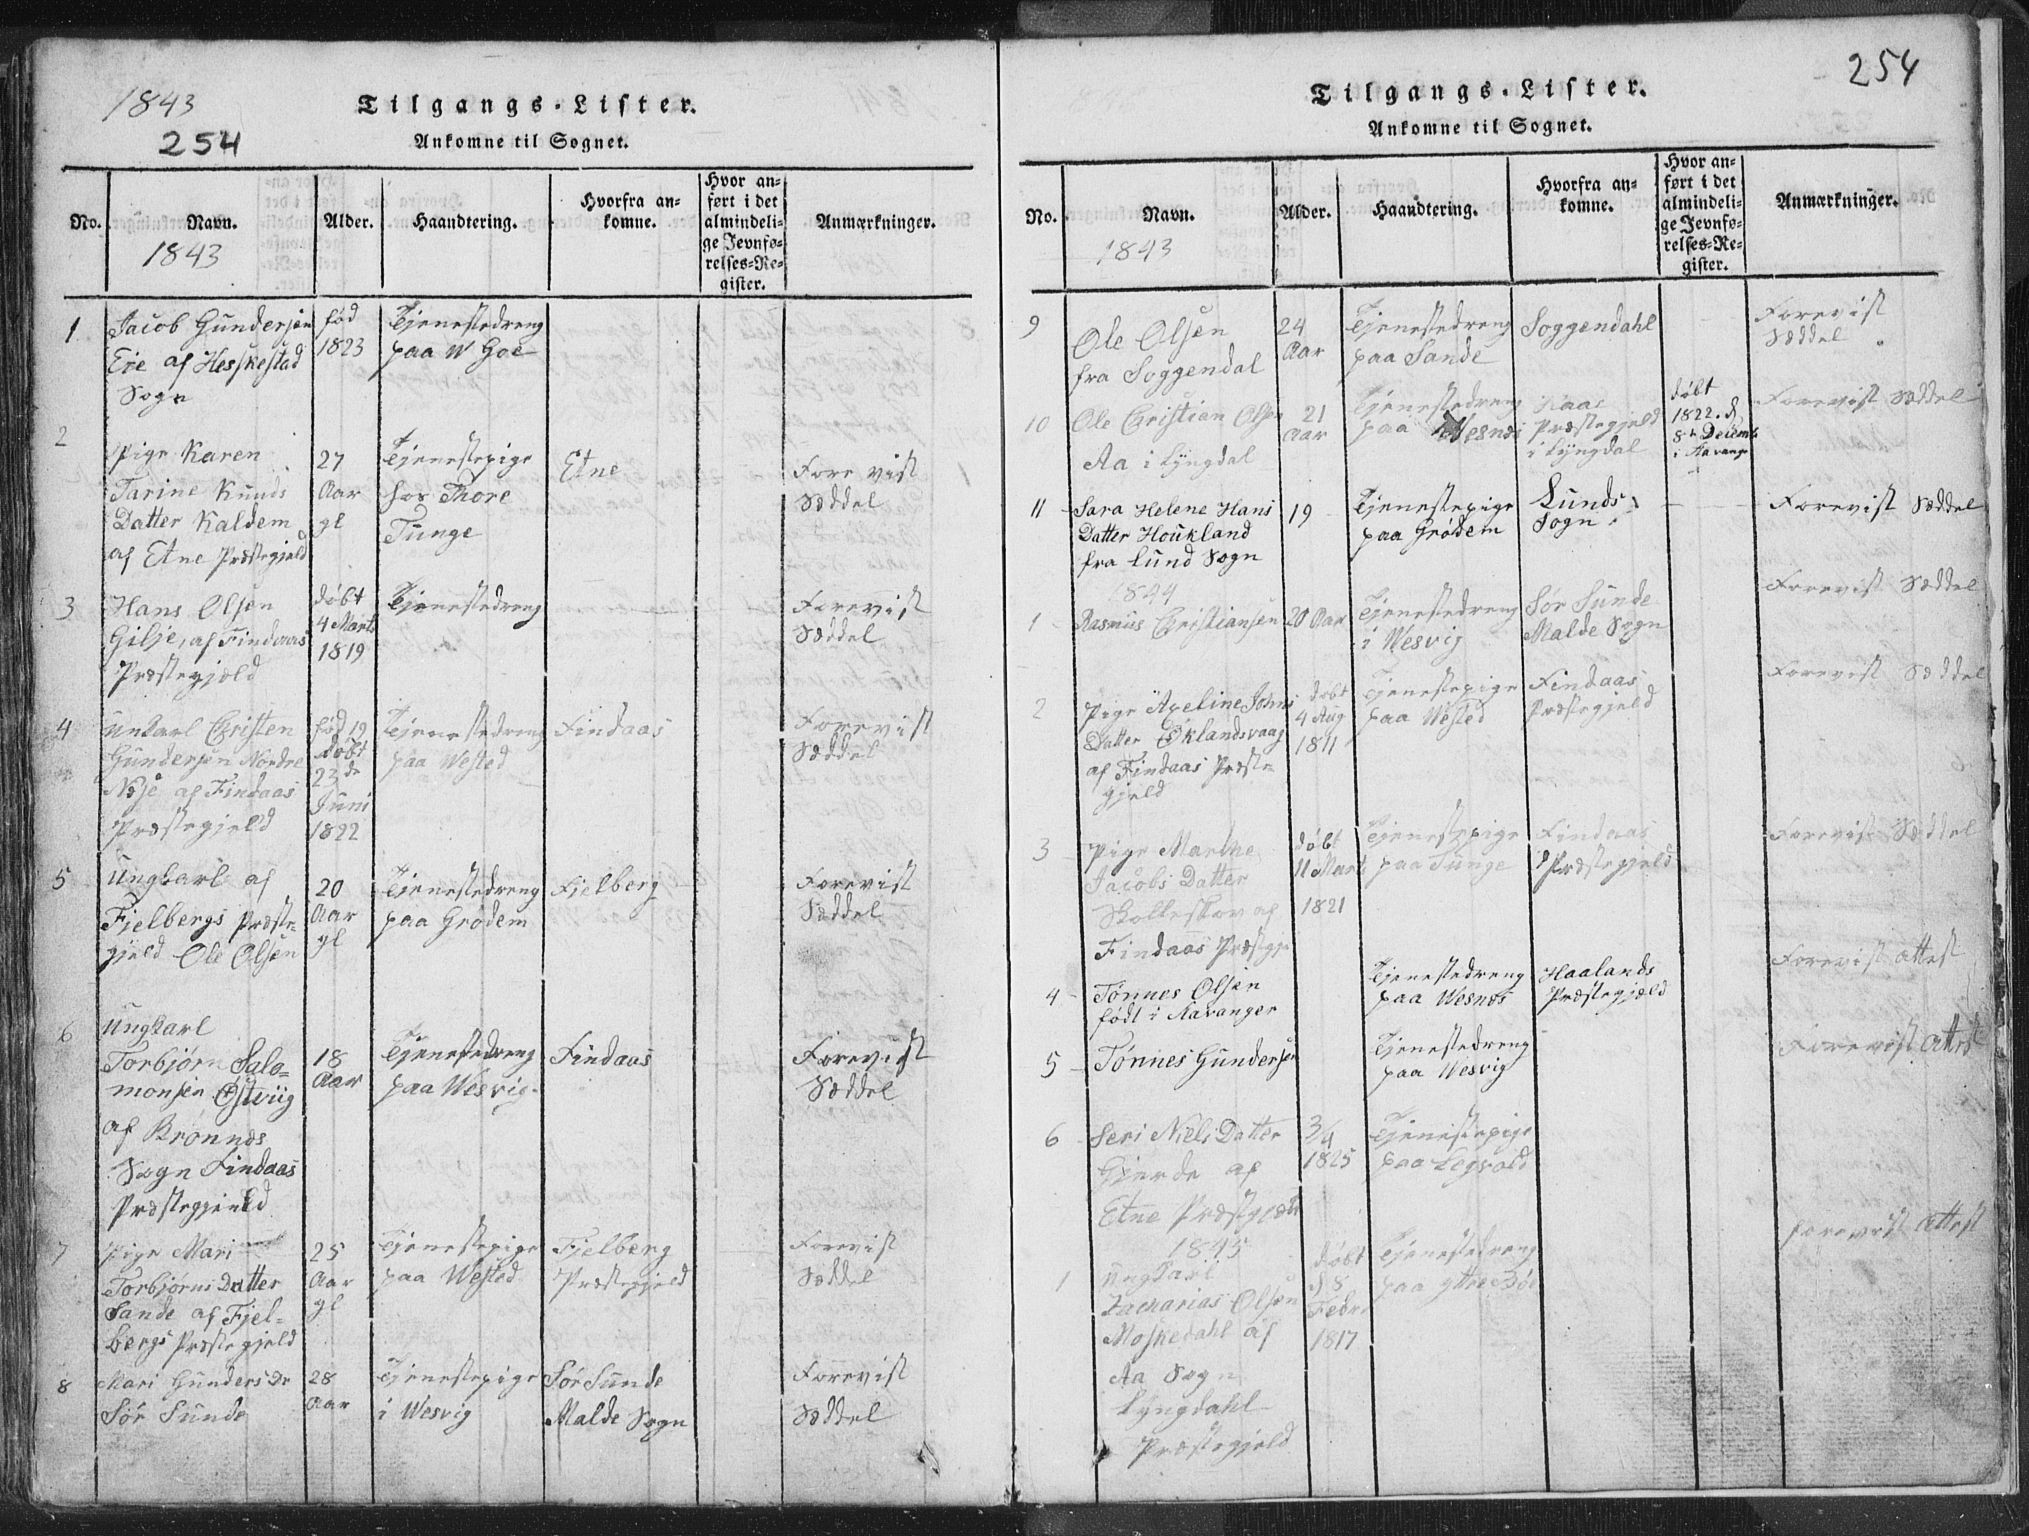 1843
254
Tilgangs-Lister.
Ankomne til Sognet.
No. Navn. Alder. Haandtering. Hvorfra ankomne. Hvor anført i det almindelige Jevnførelses-Register. Anmærkninger.
1843
1 Jacob Gundersen fød Tjenestedreng
Eie af Hesskestad 1823 paa W Goe
Sogn
2 Pige Karen 27 Tjenestepige Etne Forevist
Tarine Knuds Aar hos Thore Sæddel
Datter Kaldem gl Tunge
af Etne Præstegjeld
3 Hans Olsen døbt Tjenestedreng Forevist
Gilje, af Findaas 4 Marts Sæddel
Præstegjæld 1819
4 Unkarl Christen fød 19 Tjenestedreng Findaas Forevist
Gundersen Nordre døbt paa Wested Sæddel
af Findaas 23de
Præstegjeld Juni
1822
5 Ungkarl af 20 Tjenestedreng Fjelberg Forevist
Fjelbergs Præste- Aar paa Grødem Sæddel
gjeld Ole Olsen gl
6 Ungkarl
Torbjørn Salo- 18 Tjenestedreng Findaas Forevist
monsen Østviig Aar paa Wesvig Sæddel
af Brønnæs
Sogn Findaas
Præstegjeld
7 Pige Mari 25 Tjenestepige Fjelberg Forevist
Torbjørns Datter Aar paa Wested Præstegjeld Sæddel
Sande af Fjel- gl
bergs Præstegjeld
8 Mari Gunders Dr 28 Tjenestepige Sør Sunde Forevist
Sør Sunde Aar i Wesvig Malde Sogn Sæddel
254
Tilgangs-Lister.
Ankomne til Sognet.
No. Navn. Alder. Haandtering. Hvorfra ankomne. Hvor anført i det almindelige Jevnførelses-Register. Anmærkninger.
1843
9 Ole Olsen 24 Tjenestedreng Soggendahl Forevist
fra Soggendal Aar paa Sande Sæddel
10 Ole Christian Olsen 21 Tjenestedreng Præstegjeld døbt Forevist Sæddel
Aa i Lyngdal Aar paa Wesnes i Lyngdal 1822. d. 8de Decemb
11 Sara Helene Hans 19 Tjenestepige Lunds Forevist Sæddel
Datter Houkland paa Grødem Sogn
fra Lund Sogn
1844
1 Rasmus Christiansen 20 Aar Tjenestedreng Sør Sunde Forevist Sæddel
i Wesvig Malde Sogn
2 Pige Axeline Johns døbt Tjenestepige Findaas Forevist Sæddel
Datter Øklandsvaag 4 Aug paa Wested Præstegjeld
af Findaas Præste- 1811
gjeld
3 Pige Marthe døbt Tjenestepige Findaas Forevist Sæddel
Jacobs Datter 11 Mart paa Tunge Præstegjeld
af 1821
Findaas Præstegje
4 Tønnes Olsen Tjenestedreng Haalands Forevist attest
født i Aavanger paa Wesnes Præstegjæld
5 Tønnes Gundersen Tjenestedreng Forevist attest
paa Wesvig
6 Seri Niels Datter 3/4 Tjenestepige
Gjerde af 1825 paa Legvold
Etne Præstgjæld
1845
1 Ungkarl døbt Tjenestedreng forevist attest
Zacharias Olsen d 8 paa ytre Bøe
Moskedahl af Febr
Aa Sogn 1817
Lyngdahl
Præstegjeld